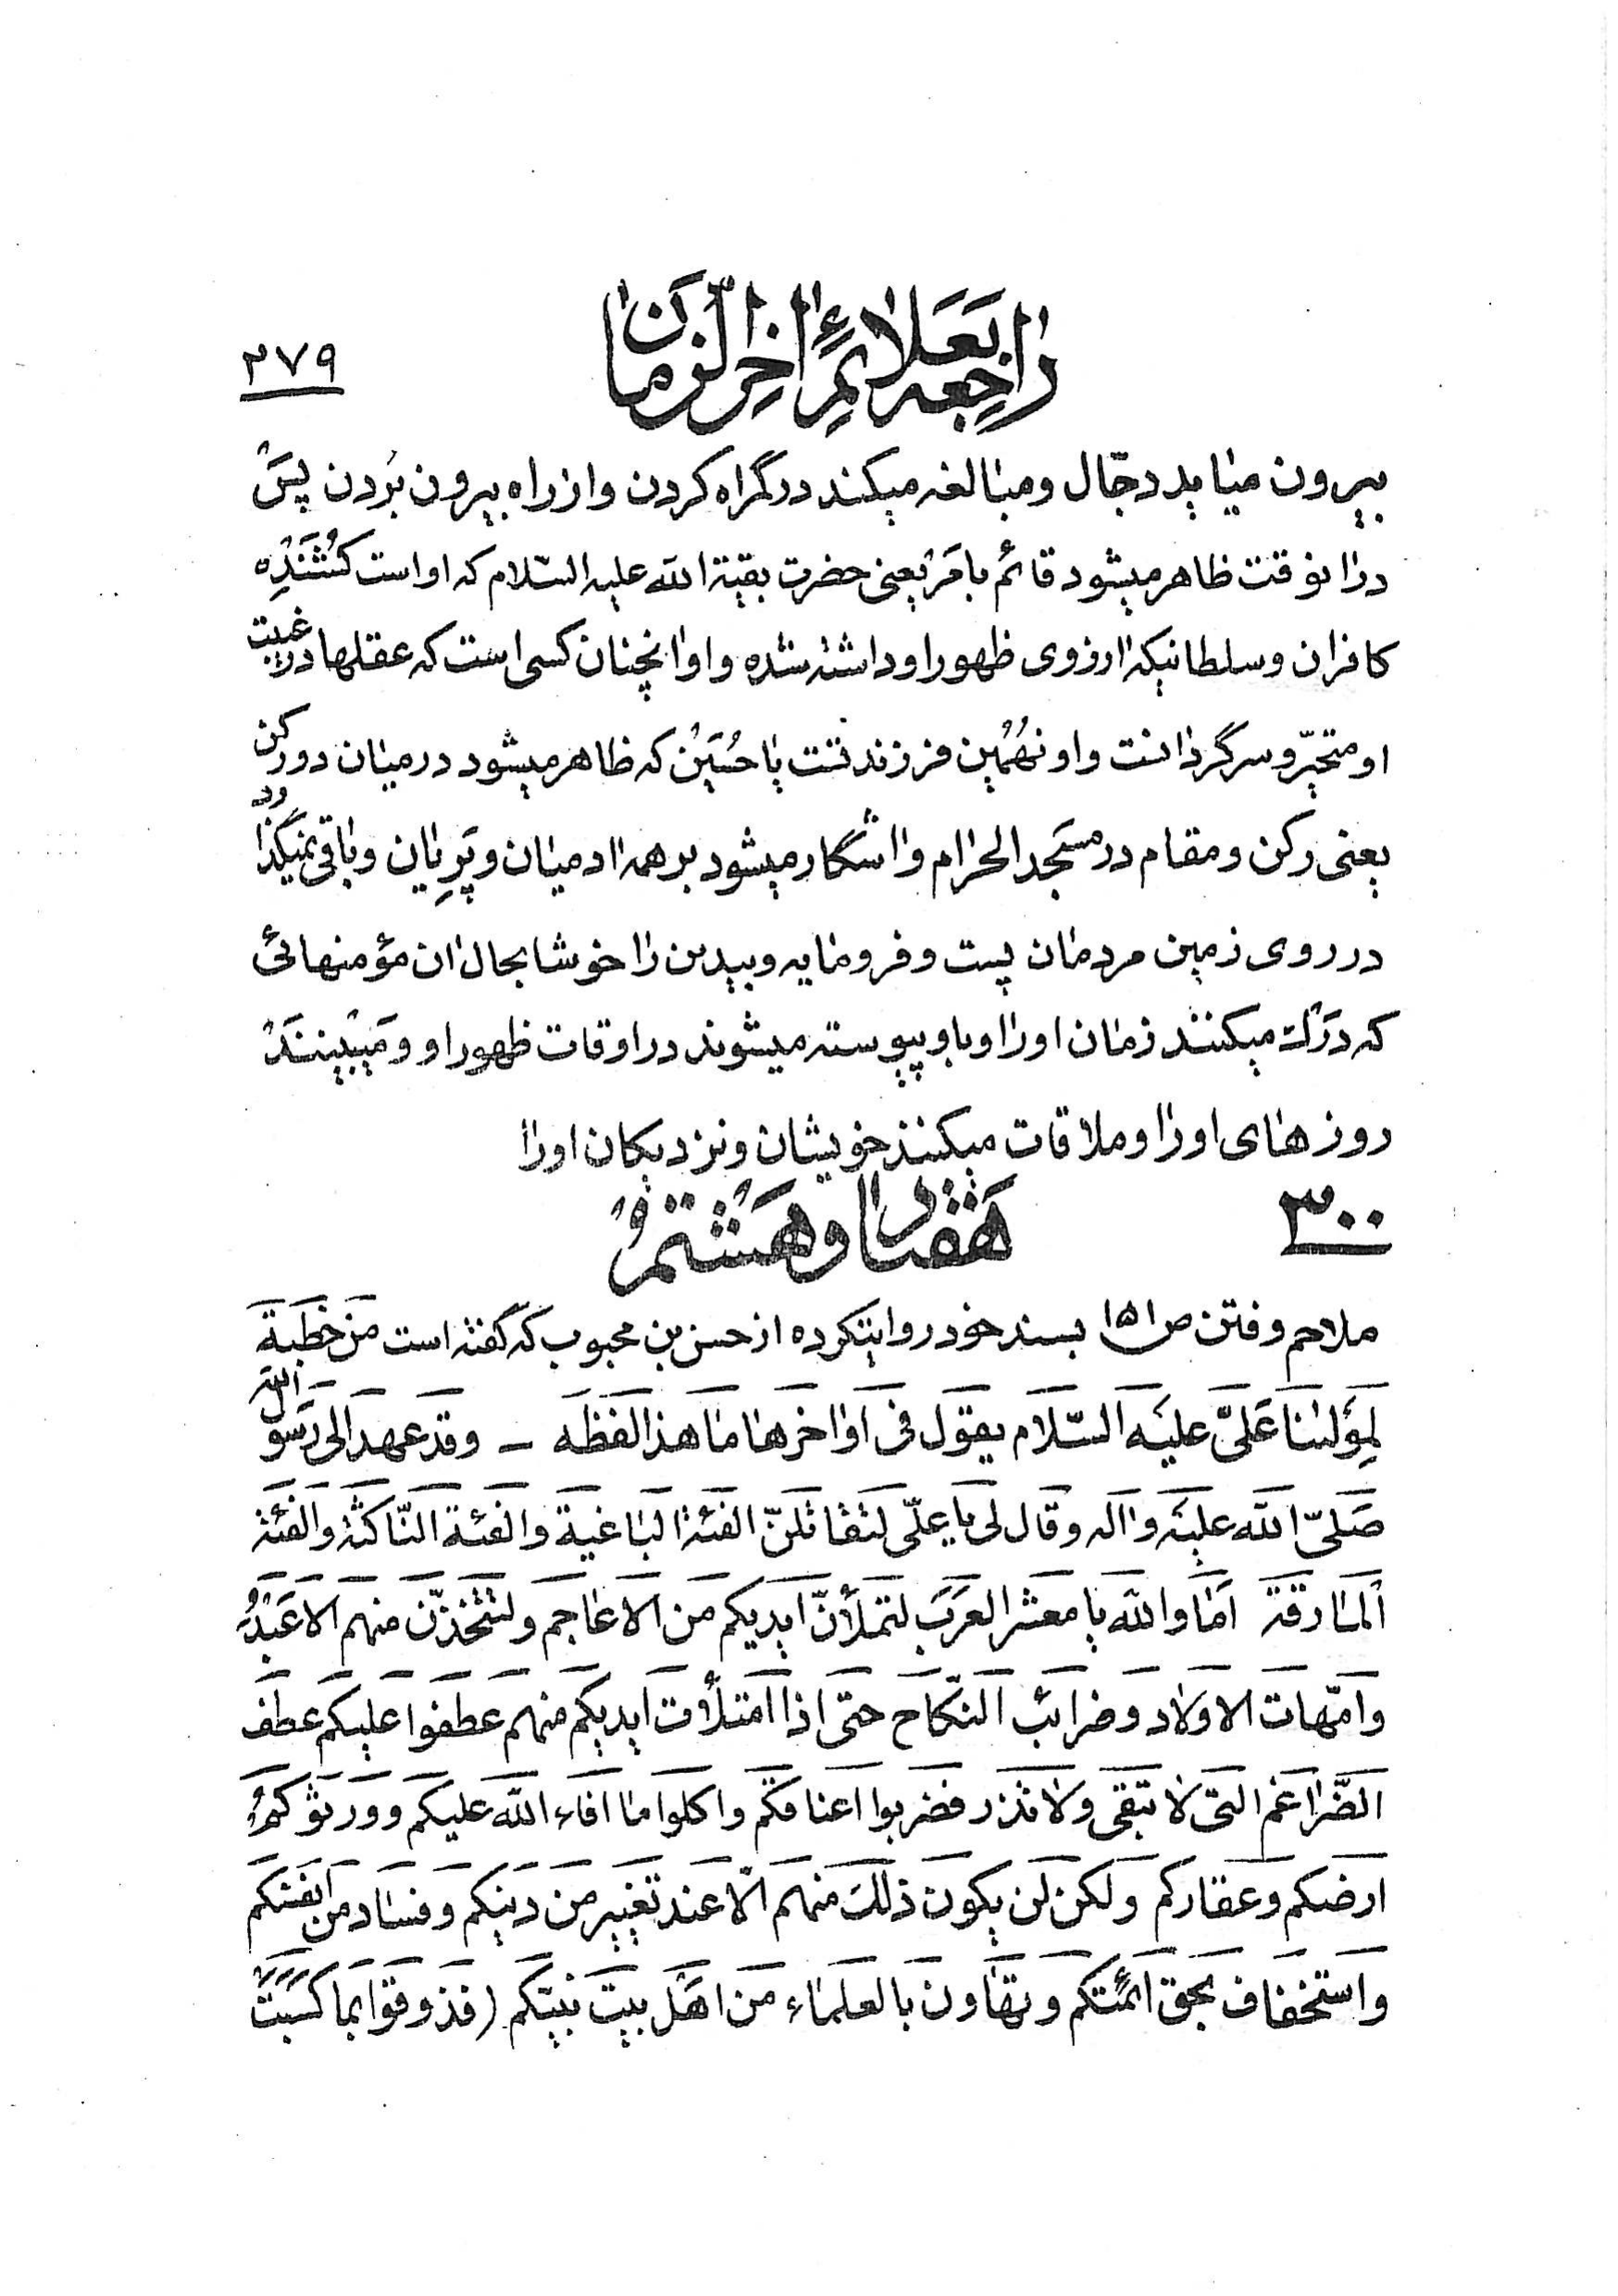 راجعه بعلائم اخر الزمان
۲۷۹
بیرون میاید دجّال ومبالغه میکند درگمراه کردن وازراه بیرون بُردن پسَ
درانوقت ظاهر میشود قائم بامَر یعنی حضرت بقیة الله علیه السّلام که اواست کُشَنَدِه
کافران وسلطانیکه ارزوی ظهور اوداشته شده واوانچنان کسی است که عقلها درغیبت
اومتحیّر وسرگردانست واونهُمین فرزند تست یاحُسَیْن که ظاهر میشود درمیان دورکن
یعنی رکن ومقام درمسَجد الحرام واشکار میشود برهمه ادمیان وپَرِیان وباقی نمیگذارد
درروی زمین مردمان پست وفرومایه وبیدین را خوشابحال ان مؤمنهائی
که دَرْک میکنند زمان اورا وباو پیوسته میشوند دراوقات ظهور او ومَیبیننَدْ
روزهای اورا وملاقات میکنند خویشان ونزدیکان اورا
۳۰۰
هَفتاد وهَشتمُ
ملاحم وفتن ص ۱۵۱ بسند خود روایتکرده از حسن بن محبوب که گفته است مَن خطبَة
لِمَولینا عَلیّ علیَه السّلام یقوَل فی اواخرها ما هذا لفظَه – وقد عهد الیَ رسَول الله
صَلیّ الله علیَه واله وقال لی یا علّی لتقاتلَنّ الفئَة الباغیة والفئة النّاکثة والفئة
اَلمارقة اَما والله یا معشر العرَبَ لتملَأنّ ایدیکم من الاعاجم ولتتّخذنّ منهم الاعَبُدُ
وامّهات الاولاد وضرائب النّکاح حتی اذا امتلأت ایدیکم منهم عطفوا علیکم عطف
الضّراغم التی لا تبقی ولا تذر فضربوا اعناقکم واکلوا ما افاء الله علیکم وورثوکم
ارضکم وعقارکم ولکن لن یکون ذلک منهم الّا عند تغییر من دینکم وفساد من انفسکم
واستخفاف بحق ائمّتکم وتهاون بالعلماء من اهل بیت نبیّکم (فذوقوا بما کسَبَت